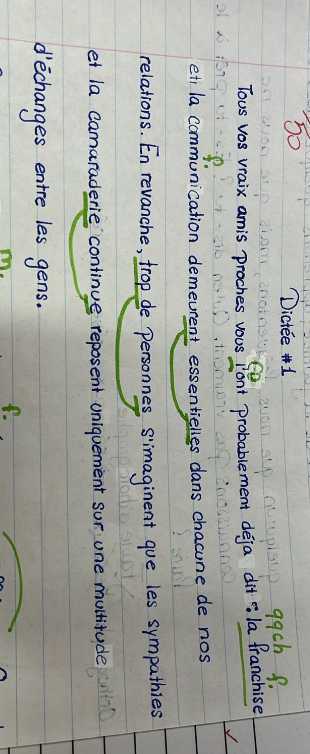 50
Dictée #1
qqch f.
Tous vos vraix amis proches vous l'ont probablement déja dit : la franchise
f.
et la communication demeurent essentielles dans chacune de nos
relations. En revanche, trop de personnes s'imaginent que les sympathies
et la camaraderie continue reposent uniquement sur une multitude
d'échanges entre les gens.
m.
f.